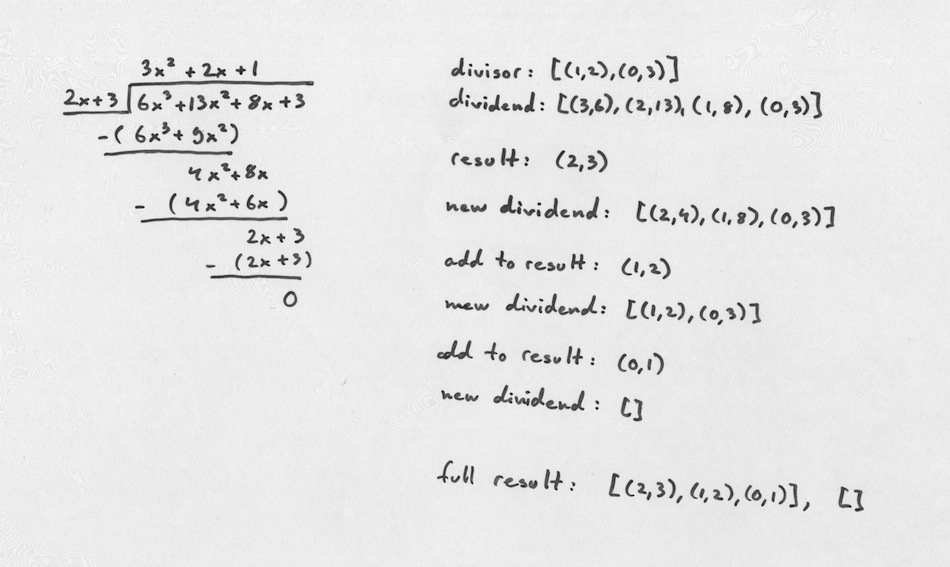 3x² + 2x + 1
2x+3 6x³+13x²+8x+3
-( 6x³+ 9x²)
4x²+8x
- (4x²+6x )
2x+3
- (2x+3)
0
divisor: [(1,2),(0,3)]
dividend: [(3,6), (2,13), (1,8), (0,3)]
result: (2,3)
new dividend: [(2,4),(1,8),(0,3)]
add to result: (1,2)
new dividend: [(1,2),(0,3)]
add to result: (0,1)
new dividend: []
full result: [(2,3),(1,2),(0,1)], []